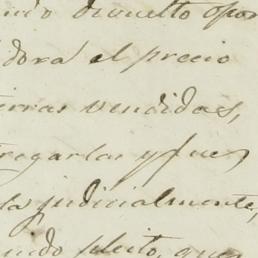 nido devuelto opor
dora el precio
ierras vendidas,
tregarlas y fue
da judicialmente,
nido pleito, que